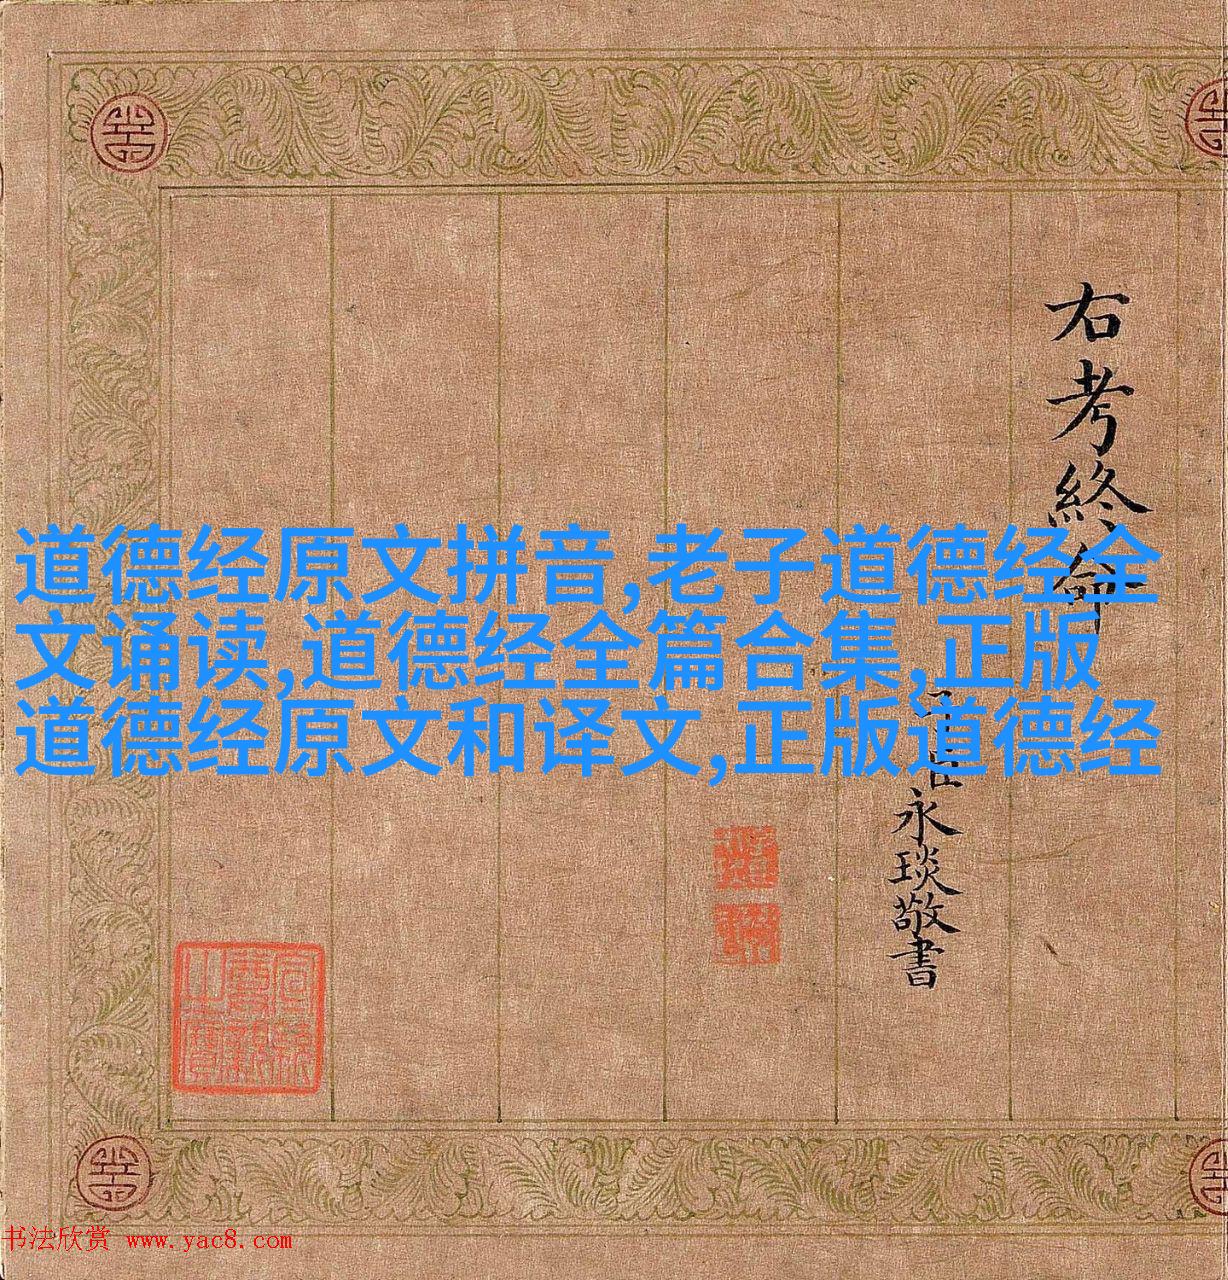 右考終命
子臣永琰敬書
道德经原文拼音,老子道德经全
文诵读,道德经全篇合集,正版
道德经原文和译文,正版道德经
宣統御覽之寶
书法欣赏 www.yac8.com